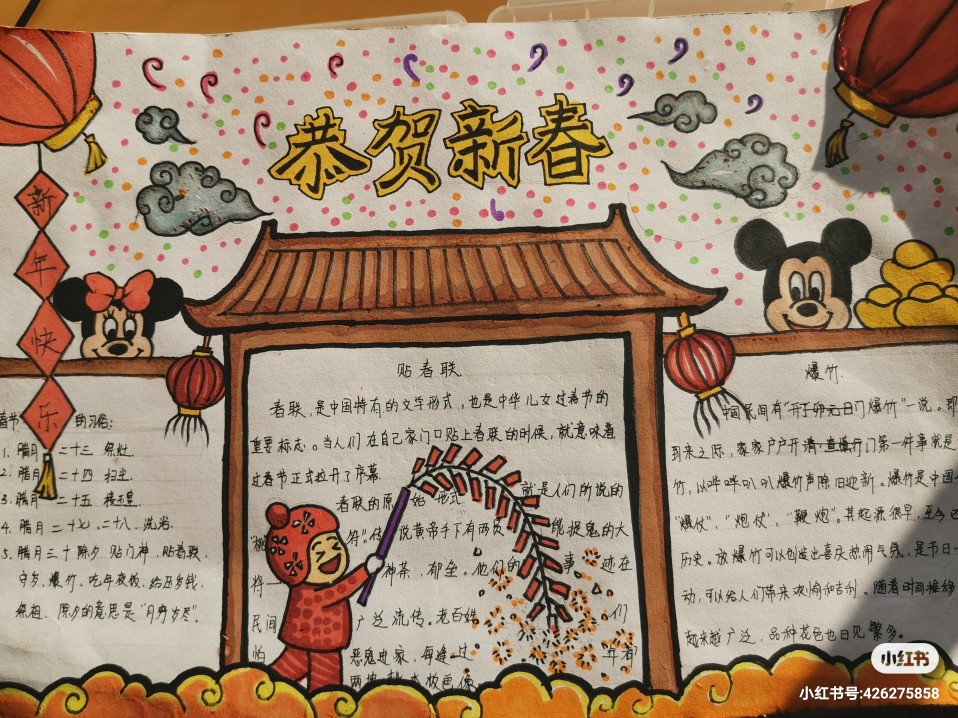 恭贺新春
新年快乐
春节 的习俗:
1. 腊月 二十三 祭灶
2. 腊月 二十四 扫尘
3. 腊月 二十五 接玉皇
4. 腊月二十七、二十八, 洗浴
5. 腊月三十除夕 贴门神, 贴春联,
守岁, 爆竹, 吃年夜饭, 给压岁钱,
祭祖, 除夕的意思是“月穷岁尽”.
贴春联.
春联, 是中国特有的文学形式, 也是中华儿女过春节的
重要标志。当人们在自己家门口贴上春联的时候, 就意味着
过春节正式拉开了序幕.
春联的原始形式 就是人们所说的
符”. 传 说黄帝手下有两员 能捉鬼的大
将一 神荼, 郁垒. 他们的 事 迹在
民间 广泛流传. 老百姓 们
怕 恶鬼进家, 每逢 过 年者
爆竹.
中国民间有“开门爆竹”一说。即
到来之际, 家家户户开门第一件事就是
竹, 以哔哔叭叭爆竹声除旧迎新。爆竹是中国
“爆仗”, “炮仗”, “鞭炮”。其起源很早, 至今已
历史。放爆竹可以创造出喜庆热闹气氛, 是节日
动, 可以给人们带来欢愉和吉利。随着时间推移
越来越广泛, 品种花色也日见繁多。
小红书
小红书号:426275858